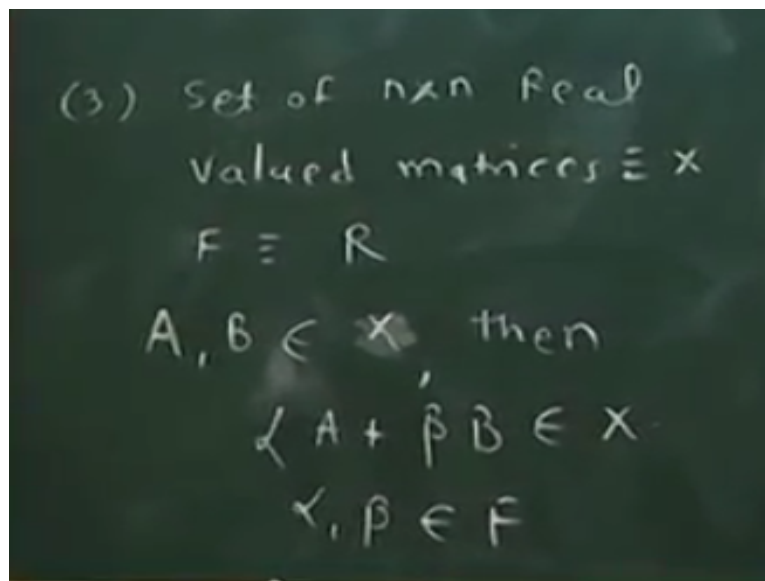 (3) Set of n×n Real
Valued matrices ≡ X
F ≡ R
A, B ∈ X, then
α A + β B ∈ X
α, β ∈ F